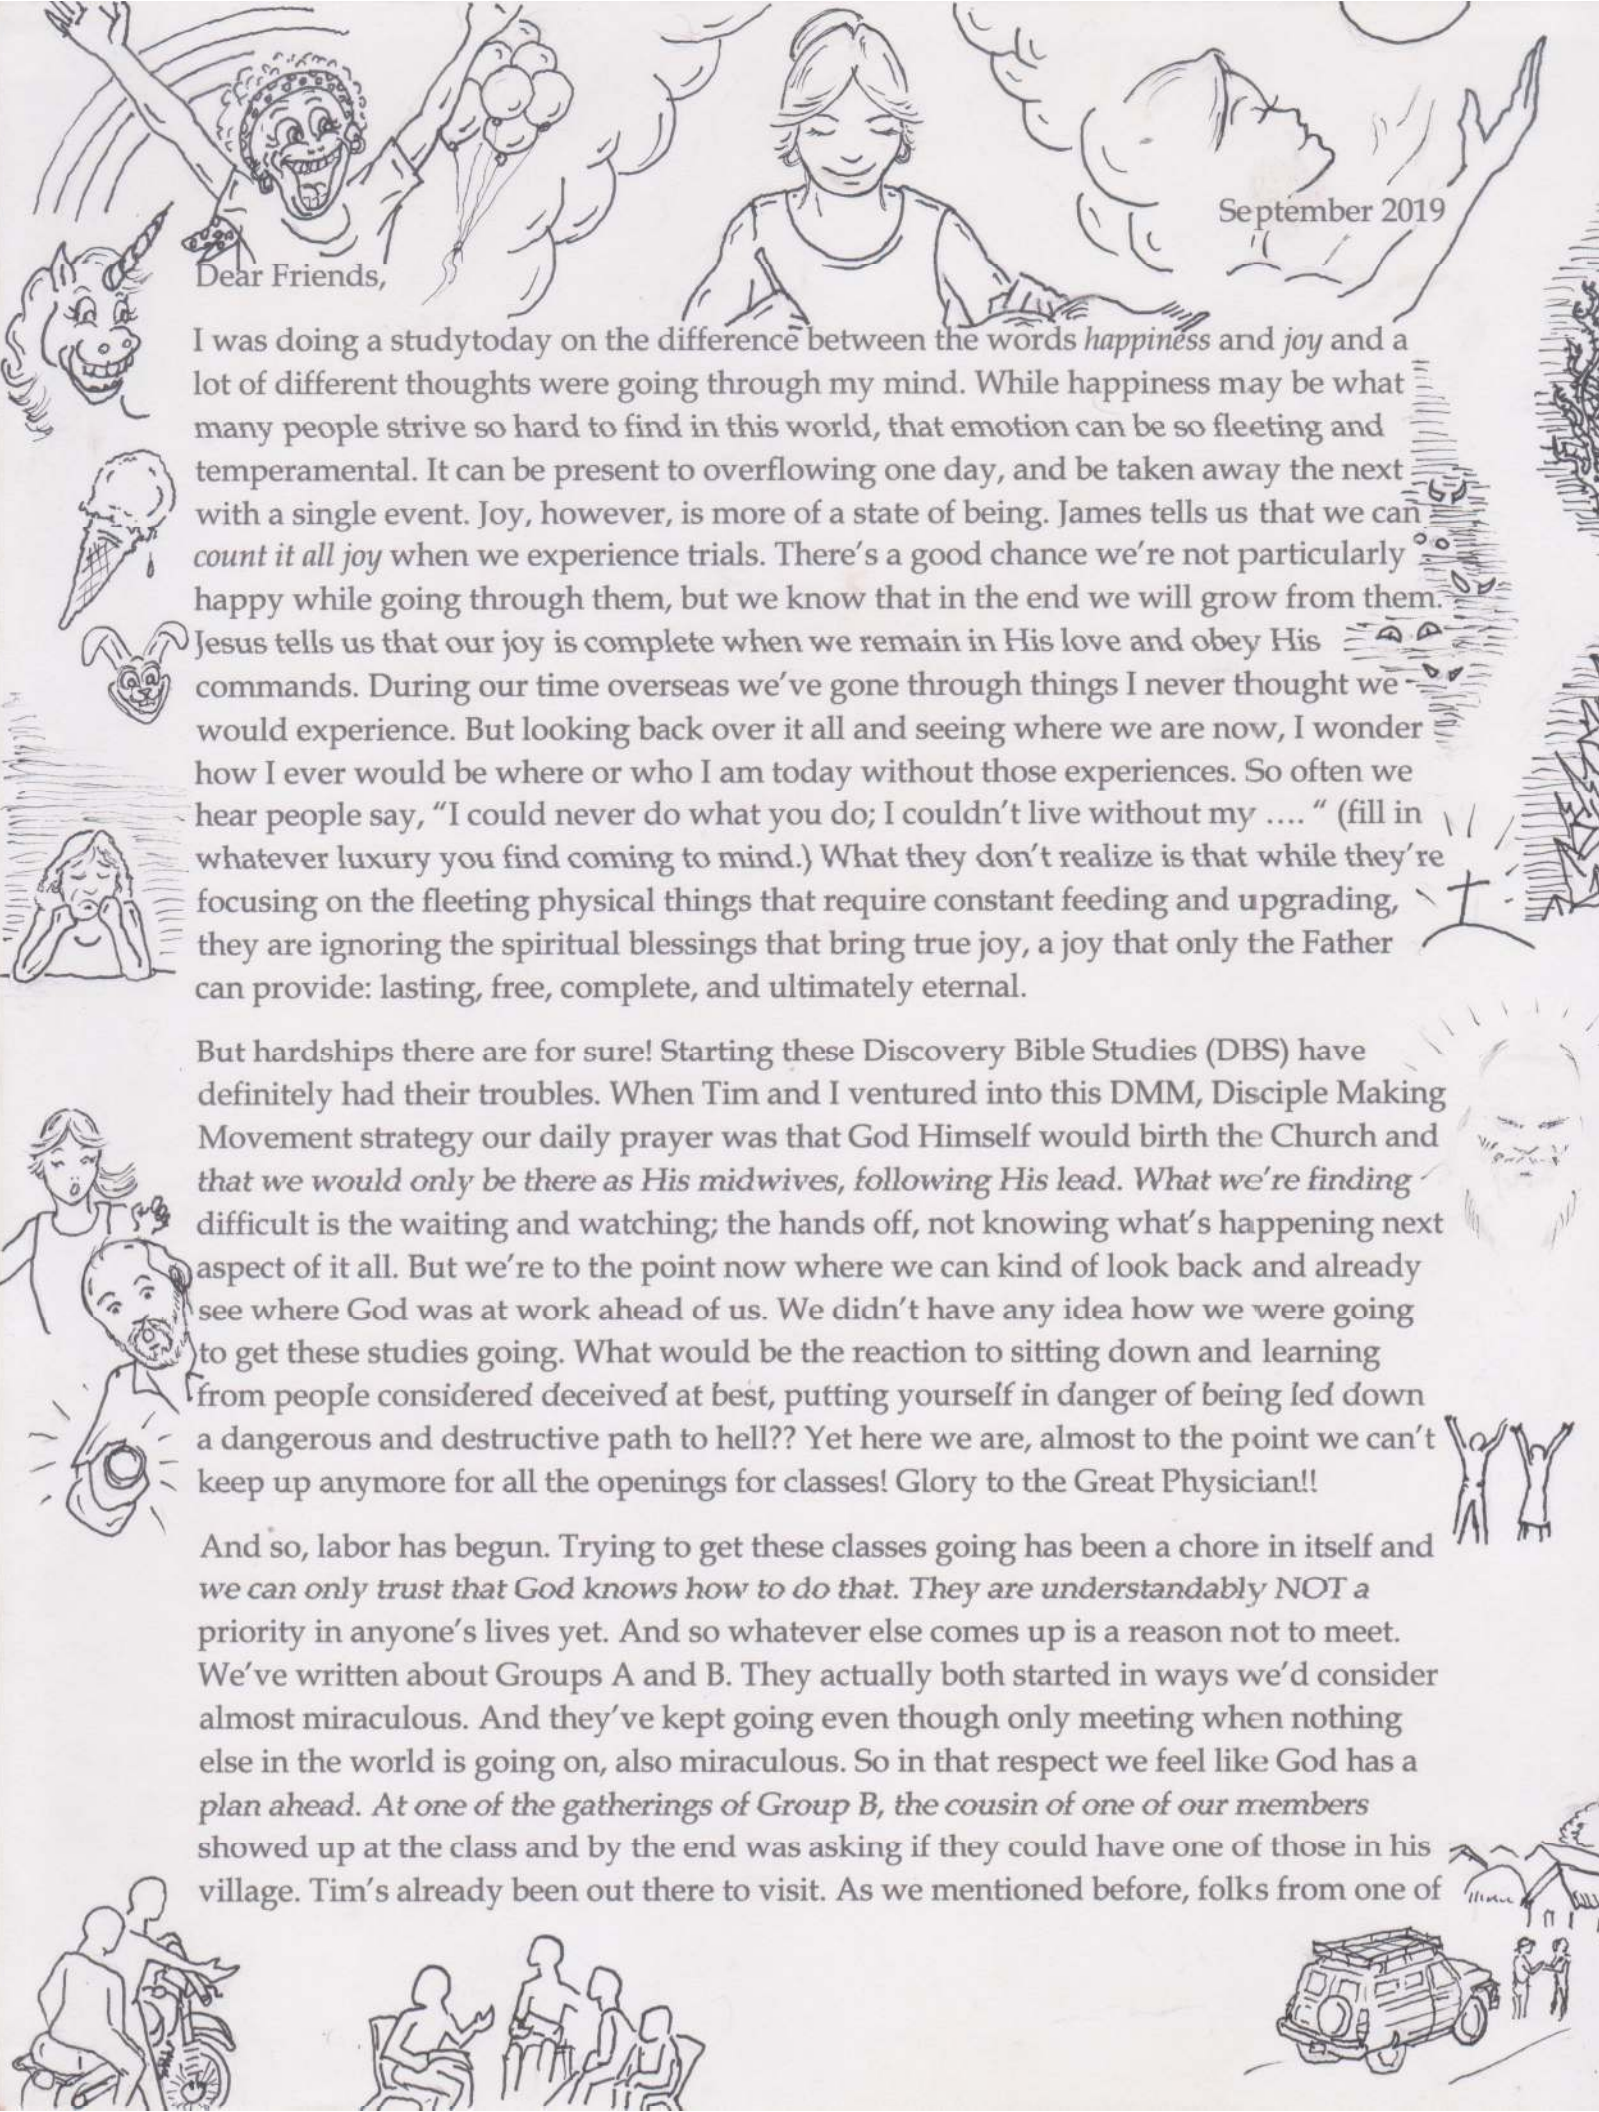 September 2019
Dear Friends,
I was doing a studytoday on the difference between the words happiness and joy and a
lot of different thoughts were going through my mind. While happiness may be what
many people strive so hard to find in this world, that emotion can be so fleeting and
temperamental. It can be present to overflowing one day, and be taken away the next
with a single event. Joy, however, is more of a state of being. James tells us that we can
count it all joy when we experience trials. There's a good chance we're not particularly
happy while going through them, but we know that in the end we will grow from them.
Jesus tells us that our joy is complete when we remain in His love and obey His
commands. During our time overseas we've gone through things I never thought we
would experience. But looking back over it all and seeing where we are now, I wonder
how I ever would be where or who I am today without those experiences. So often we
hear people say, "I could never do what you do; I couldn't live without my …. " (fill in
whatever luxury you find coming to mind.) What they don't realize is that while they're
focusing on the fleeting physical things that require constant feeding and upgrading,
they are ignoring the spiritual blessings that bring true joy, a joy that only the Father
can provide: lasting, free, complete, and ultimately eternal.
But hardships there are for sure! Starting these Discovery Bible Studies (DBS) have
definitely had their troubles. When Tim and I ventured into this DMM, Disciple Making
Movement strategy our daily prayer was that God Himself would birth the Church and
that we would only be there as His midwives, following His lead. What we're finding
difficult is the waiting and watching; the hands off, not knowing what's happening next
aspect of it all. But we're to the point now where we can kind of look back and already
see where God was at work ahead of us. We didn't have any idea how we were going
to get these studies going. What would be the reaction to sitting down and learning
from people considered deceived at best, putting yourself in danger of being led down
a dangerous and destructive path to hell?? Yet here we are, almost to the point we can't
keep up anymore for all the openings for classes! Glory to the Great Physician!!
And so, labor has begun. Trying to get these classes going has been a chore in itself and
we can only trust that God knows how to do that. They are understandably NOT a
priority in anyone's lives yet. And so whatever else comes up is a reason not to meet.
We've written about Groups A and B. They actually both started in ways we'd consider
almost miraculous. And they've kept going even though only meeting when nothing
else in the world is going on, also miraculous. So in that respect we feel like God has a
plan ahead. At one of the gatherings of Group B, the cousin of one of our members
showed up at the class and by the end was asking if they could have one of those in his
village. Tim's already been out there to visit. As we mentioned before, folks from one of